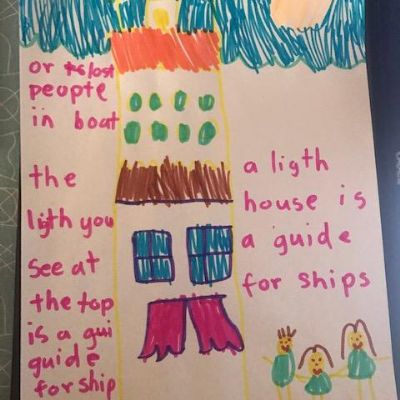 or lost
peopte
in boat
the
ligth you
see at
the top
is a gui
guide
for ship
a ligth
house is
a guide
for ships